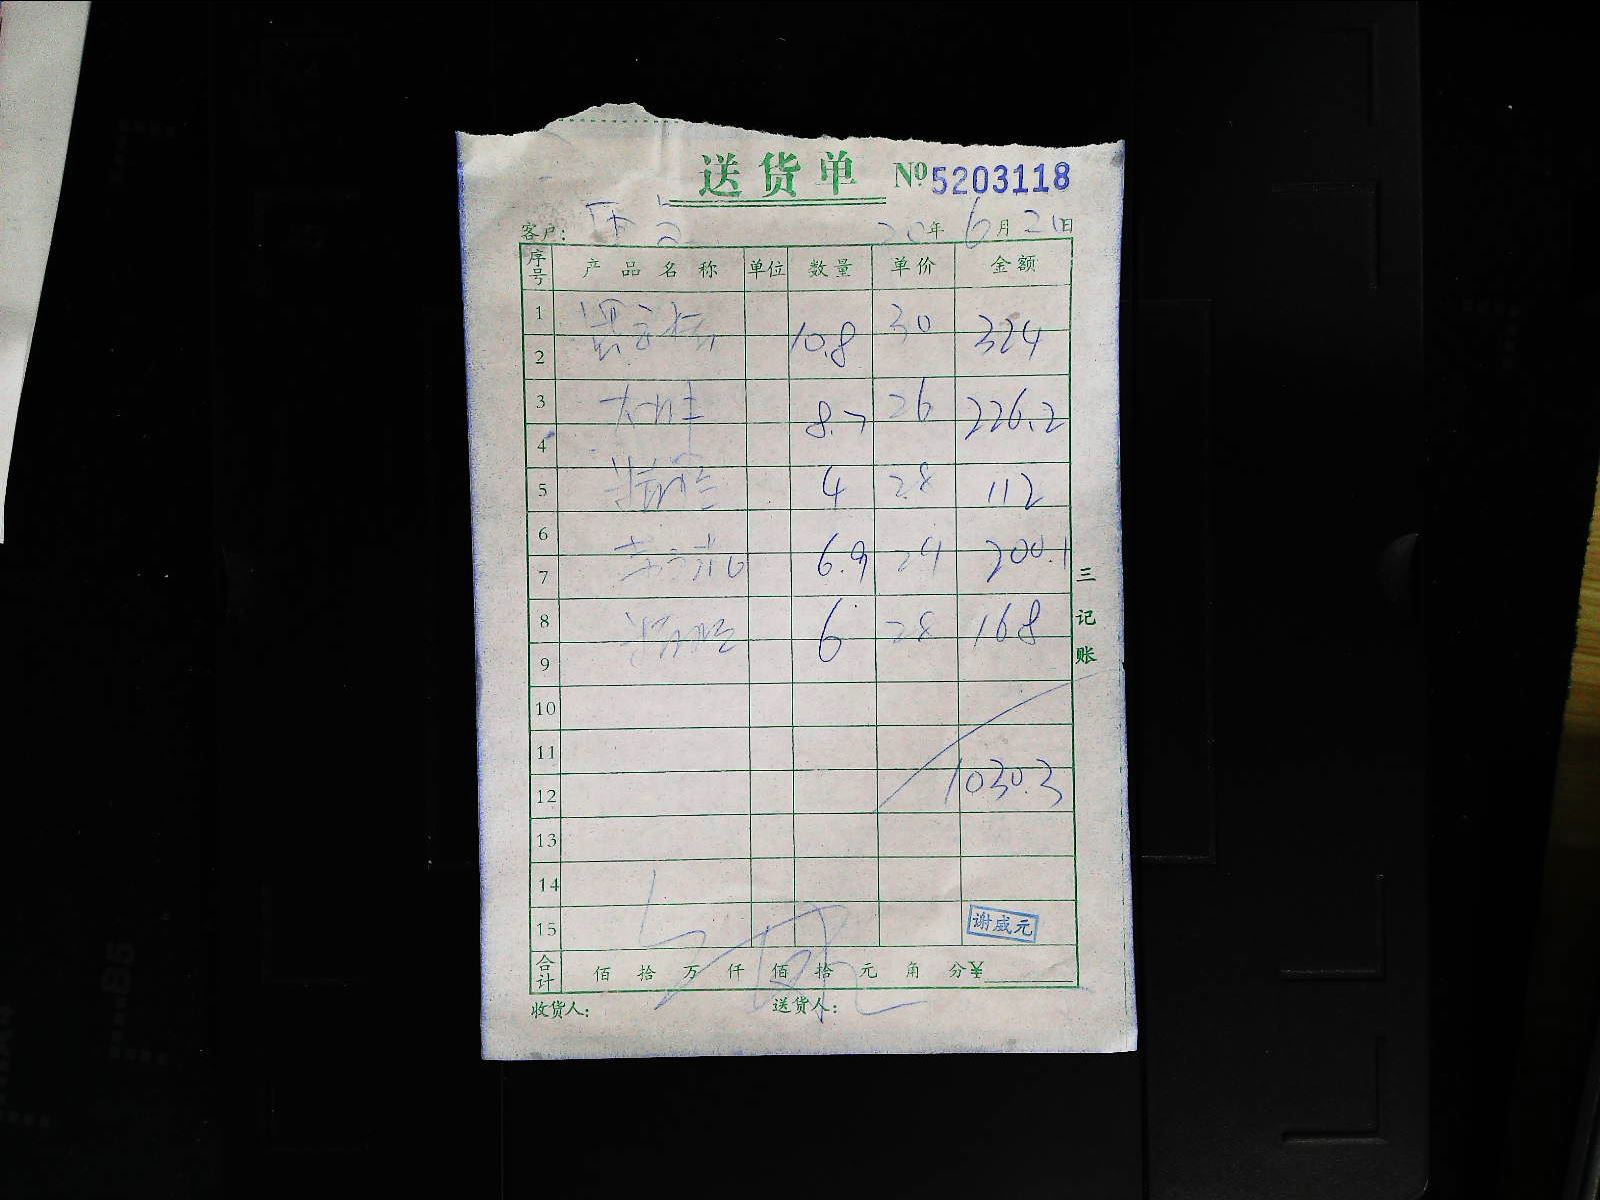 送货单 №5203118
客户: 20年6月21日
序号 产品名称 单位 数量 单价 金额
1 10.8 30 324
2
3 8.7 26 226.2
4
5 4 28 112
6
7 6.9 200.1
8 6 28 168
9
10
11
12 1030.3
13
14
15 谢威元
合计 佰 拾 万 仟 佰 拾 元 角 分¥
收货人: 送货人:
三记账